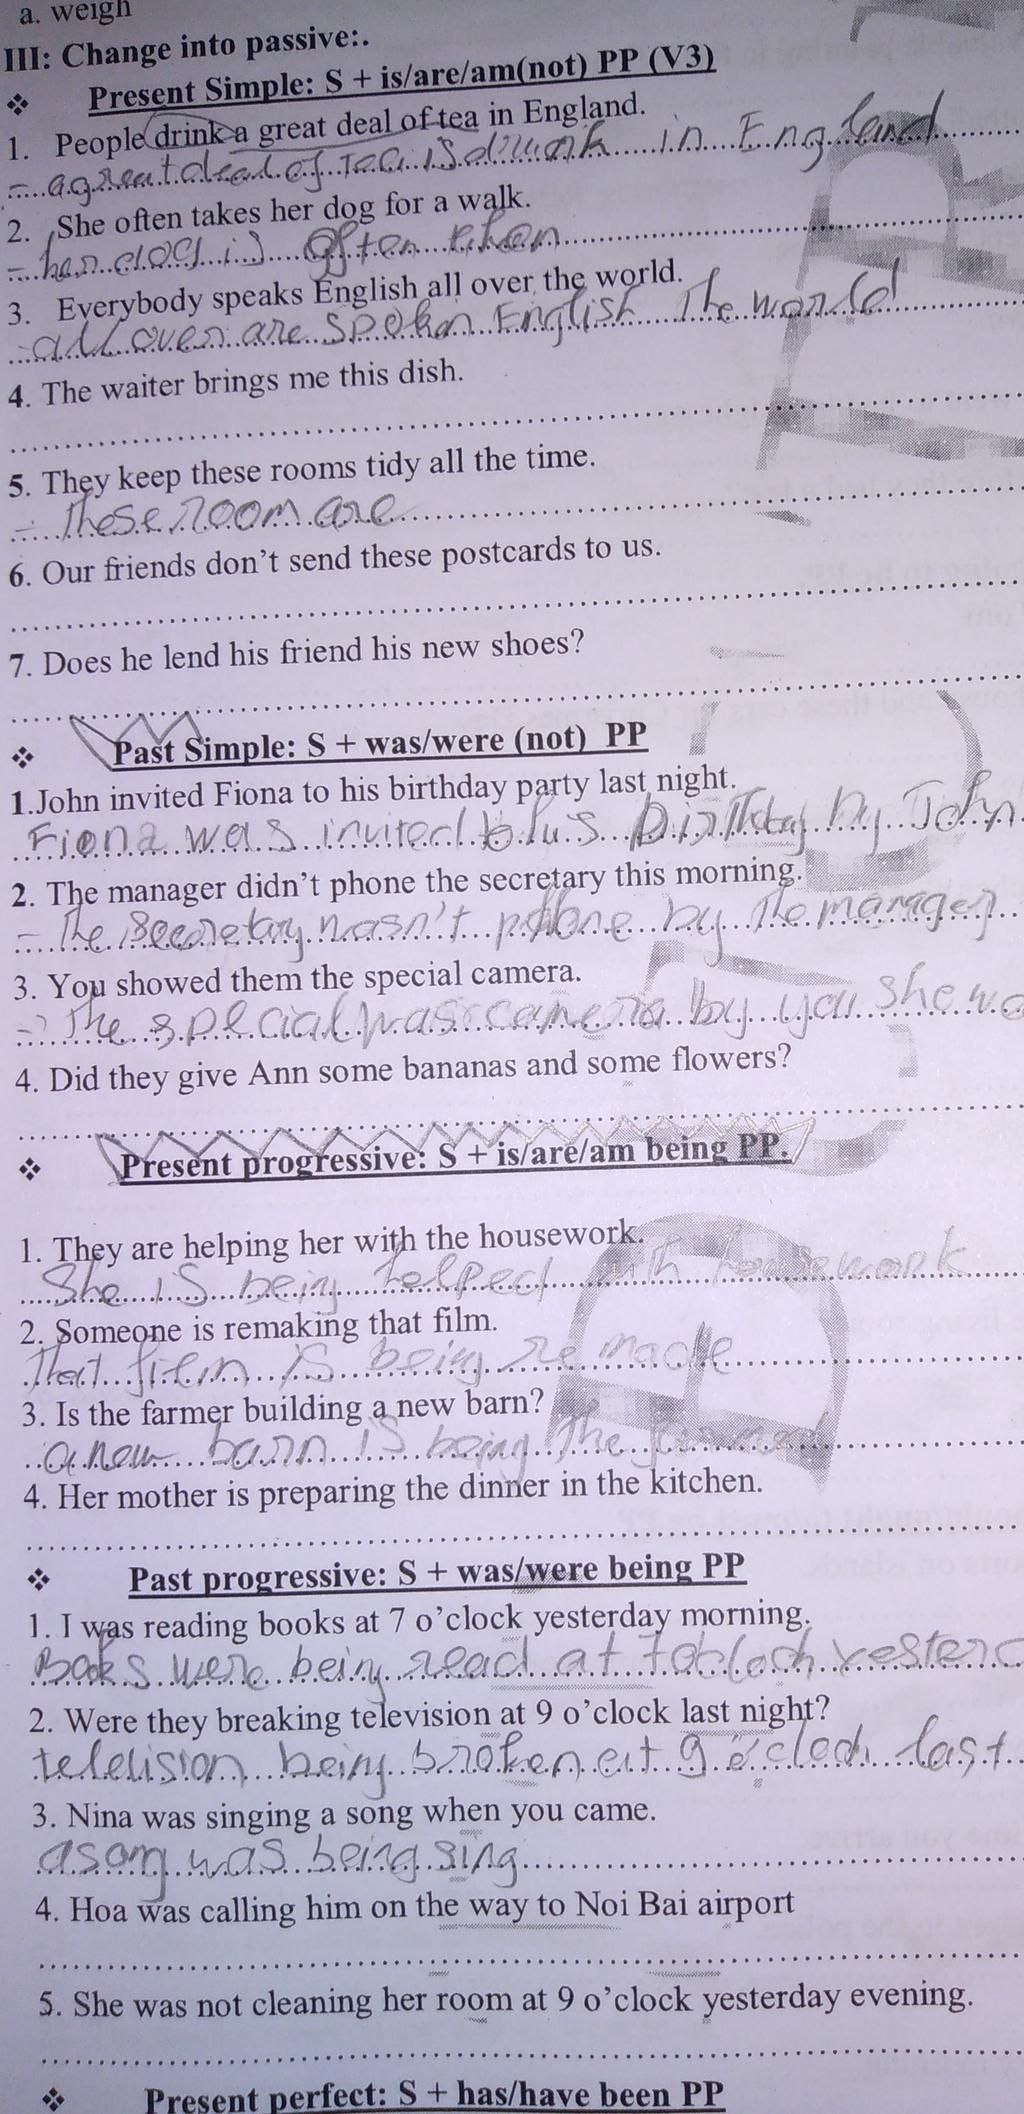 a. weigh
III: Change into passive:.
❖ Present Simple: S + is/are/am(not) PP (V3)
1. People drink a great deal of tea in England.
= a great deal of Tea is drunk in England
2. She often takes her dog for a walk.
= her dog is often taken
3. Everybody speaks English all over the world.
- all over are spoken English the world
4. The waiter brings me this dish.
5. They keep these rooms tidy all the time.
- These room are
6. Our friends don't send these postcards to us.
7. Does he lend his friend his new shoes?
❖ Past Simple: S + was/were (not) PP
1.John invited Fiona to his birthday party last night.
Fiona was invited to his birthday by John
2. The manager didn't phone the secretary this morning.
- The secretary wasn't phone by the manager
3. You showed them the special camera.
-> The special was camera by you
4. Did they give Ann some bananas and some flowers?
❖ Present progressive: S + is/are/am being PP.
1. They are helping her with the housework.
She is being helped with housework
2. Someone is remaking that film.
That film is being re made
3. Is the farmer building a new barn?
a new barn is being the
4. Her mother is preparing the dinner in the kitchen.
❖ Past progressive: S + was/were being PP
1. I was reading books at 7 o'clock yesterday morning.
Books were being read at
2. Were they breaking television at 9 o'clock last night?
being broken at 9 last
3. Nina was singing a song when you came.
a song was being sing
4. Hoa was calling him on the way to Noi Bai airport
5. She was not cleaning her room at 9 o'clock yesterday evening.
❖ Present perfect: S + has/have been PP